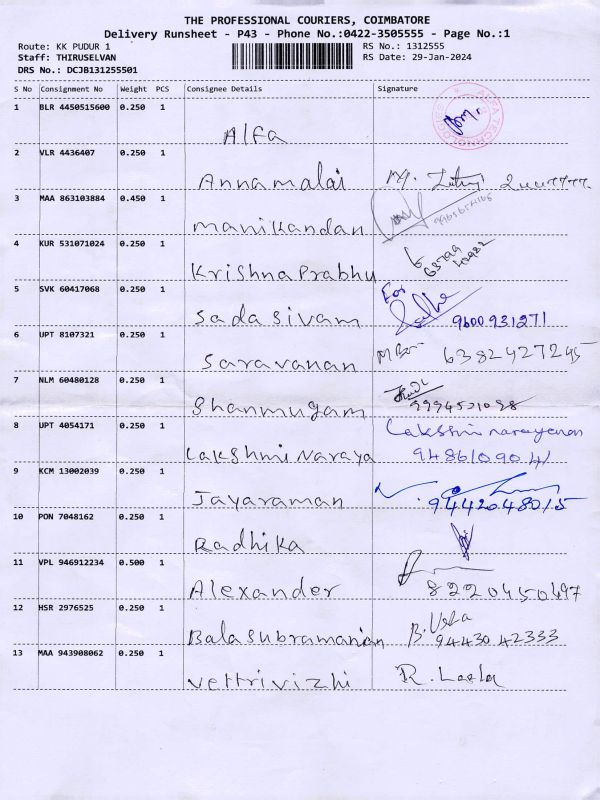 THE PROFESSIONAL COURIERS, COIMBATORE
Delivery Runsheet - P43 - Phone No.:0422-3505555 - Page No.:1
Route: KK PUDUR 1
RS No.: 1312555
Staff: THIRUSELVAN
RS Date: 29-Jan-2024
DRS No.: DCJB131255501
S No Consignment No Weight PCS Consignee Details Signature
1 BLR 4450515600 0.250 1
Alfa
2 VLR 4436407 0.250 1
Annamalai
3 MAA 863103884 0.450 1
manikandan
4 KUR 531071024 0.250 1
Krishna Prabhu
5 SVK 60417068 0.250 1
For
Sadasivam 9600931271
6 UPT 8107321 0.250 1
Saravanan 6382427245
7 NLM 60480128 0.250 1
Shanmugam
8 UPT 4054171 0.250 1 Lakshminarayanan
Lakshmi Naraya 9486109041
9 KCM 13002039 0.250 1
Jayaraman 9442048015
10 PON 7048162 0.250 1
Radhika
11 VPL 946912234 0.500 1
Alexander 8220450497
12 HSR 2976525 0.250 1
Balasubramanian 9443042333
13 MAA 943908062 0.250 1
Vettrivizhi R. Leela